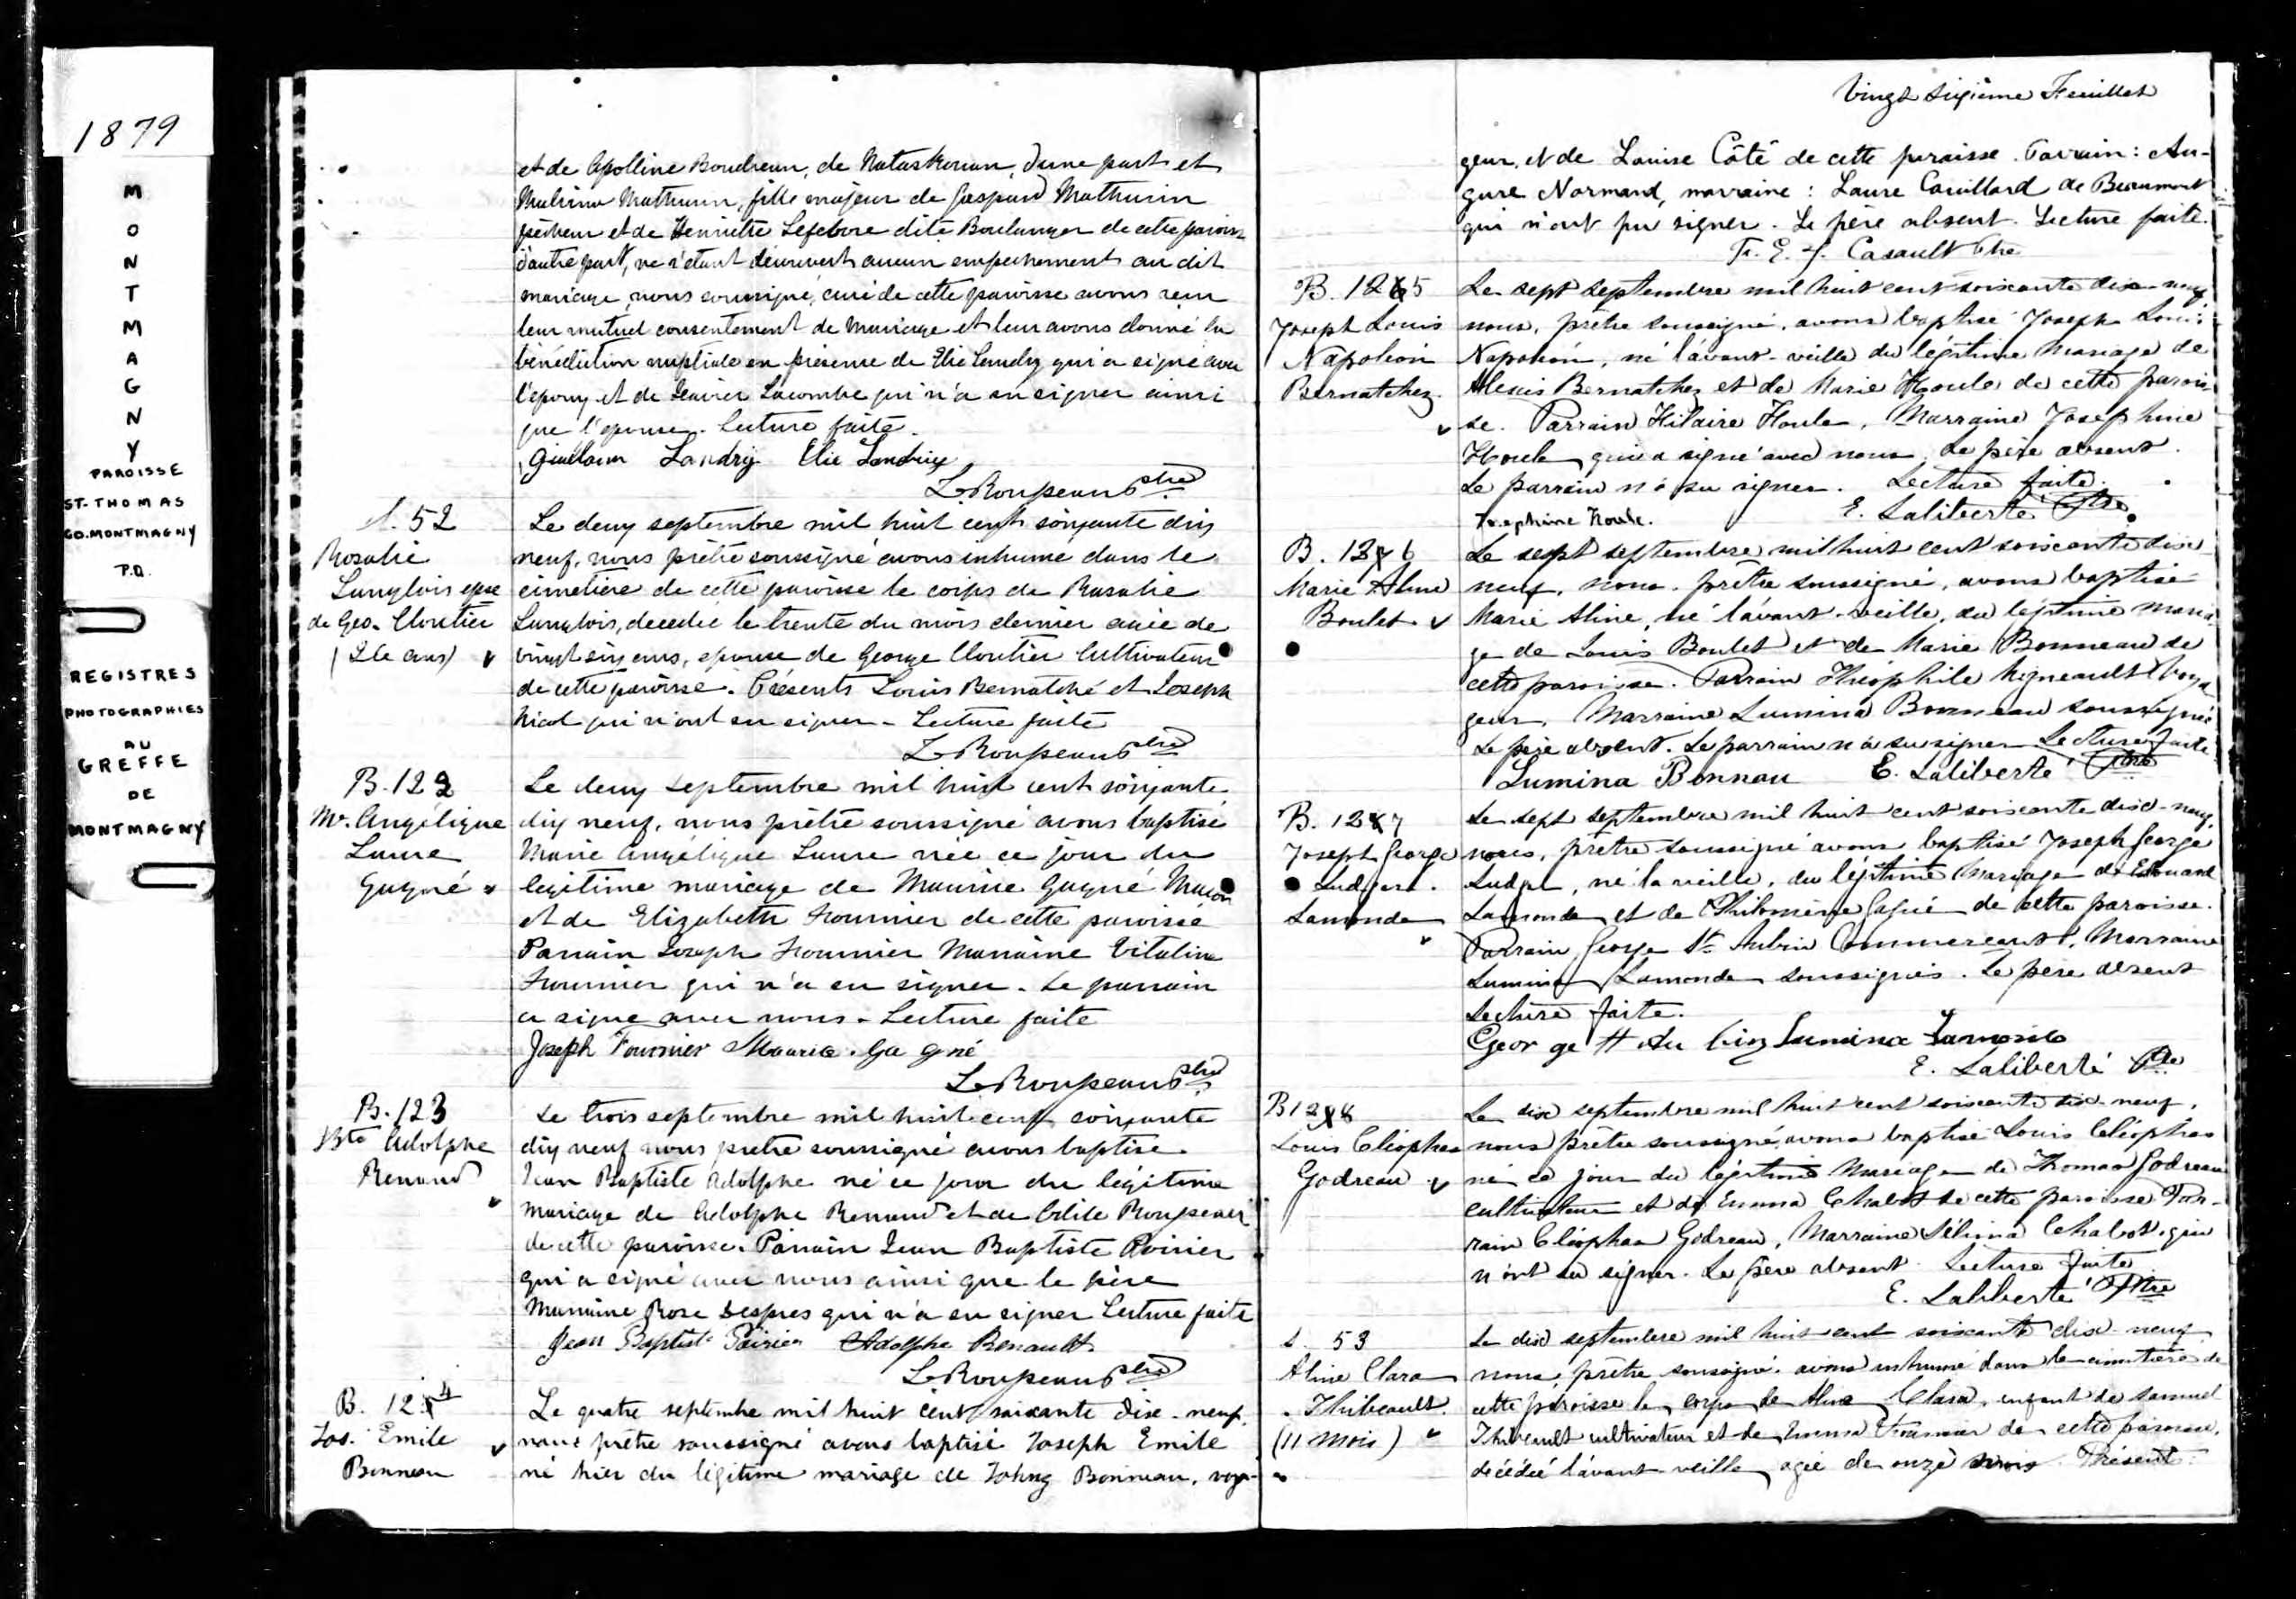 1879
M
O
N
T
M
A
G
N
Y
PAROISSE
ST-THOMAS
CO. MONTMAGNY
P.Q.
REGISTRES
PHOTOGRAPHIES
AU
GREFFE
DE
MONTMAGNY
et de Apolline Boudreau, de Nataskouan, d'une part et
Mathurin, fille majeur de Gaspard Mathurin
pêcheur et de Henriette Lefebvre dite Boulanger de cette paroisse
d'autre part, ne s'étant découvert aucun empechement au dit
mariage, nous soussigné, curé de cette paroisse avons reçu
leur mutuel consentement de mariage et leur avons donné la
bénédiction nuptiale en présence de Elie Landry qui a signé avec
l'epoux et de Lacombe qui n'a su signer ainsi
que l'epouse. Lecture faite.
Landry Elie Landry
L. Roupeau Ptre
S. 52
Rosalie
Langlois epse
de Geo. Cloutier
(26 ans)
Le deux septembre mil huit cent soixante dix
neuf, nous prêtre soussigné avons inhumé dans le
cimetière de cette paroisse le corps de Rosalie
Langlois, decedée le trente du mois dernier agée de
vingt six ans, epouse de George Cloutier Cultivateur
de cette paroisse. Présents Louis Bernatché et Joseph
Nicol qui n'ont su signer - Lecture faite
L. Roupeau Ptre
B. 122
M. Angélique
Laure
Gagné
Le deux septembre mil huit cent soixante
dix neuf, nous prêtre soussigné avons baptisé
Marie Angélique Laure née ce jour du
legitime mariage de Maurice Gagné Maçon
et de Elizabeth Fournier de cette paroisse
Parrain Joseph Fournier Marraine Vitaline
Fournier qui n'a su signer - Le parrain
a signé avec nous - Lecture faite
Joseph Fournier Maurice Ga gné
L. Roupeau Ptre
B. 123
J Bte Adolphe
Renaud
Le trois septembre mil huit cent soixante
dix neuf nous pretre soussigné avons baptisé
Jean Baptiste Adolphe né ce jour du légitime
mariage de Adolphe Renaud et de Odile Roupeau
de cette paroisse. Parrain Jean Baptiste Poirier
qui a signé avec nous ainsi que le père
Marraine Rose Despres qui n'a su signer Lecture faite
Jean Baptiste Poirier Adolphe Renault
L. Roupeau Ptre
B. 124
Jos. Emile
Bonneau
Le quatre septembre mil huit cent soixante dix-neuf,
nous prêtre soussigné avons baptisé Joseph Emile
né hier du légitime mariage de Johny Bonneau, voya-
Vingt sixième Feuillet
geur, et de Louise Côté de cette paroisse. Parrain: Au-
gure Normand, marraine: Laure Couillard de Beaumont
qui n'ont pu signer. Le père absent. Lecture faite.
Fr. E. J. Casault Ptre
B. 125
Joseph Louis
Napoléon
Bernatchez
Le sept septembre mil huit cent soixante dix-neuf
nous, prêtre soussigné, avons baptisé Joseph Louis
Napoléon, né l'avant-veille du légitime mariage de
Alexis Bernatchez et de Marie Houle de cette parois-
se. Parrain Hilaire Houle, Marraine Josephine
Houle qui a signé avec nous. Le père absent.
Le parrain n'a su signer. Lecture faite.
Josephine Houle. E. Laliberté Ptre
B. 126
Marie Aline
Boulet
Le sept septembre mil huit cent soixante dix
neuf, nous, prêtre soussigné, avons baptisé
Marie Aline, né l'avant-veille, du légitime maria-
ge de Louis Boulet et de Marie Bonneau de
cette paroisse. Parrain Théophile voya
geur, Marraine Lumina Bonneau soussignée
Le père absent. Le parrain n'a su signer Lecture faite
Lumina Bonnau E. Laliberté Ptre
B. 127
Joseph George
Ludger
Lamonde
Le sept septembre mil huit cent soixante dix-neuf,
nous, prêtre soussigné avons baptisé Joseph George
Ludger, né la veille, du légitime mariage de Edouard
Lamonde et de Philomène Gagné de cette paroisse.
Parrain George St Aubin Commerçant, Marraine
Lumina Lamonde soussignés. Le père absent
Lecture faite.
Geor ge St Au bin Lumina Lamonde
E. Laliberté Ptre
B 128
Louis Cléophas
Godreau
Le dix septembre mil huit cent soixante dix-neuf,
nous prêtre soussigné, avons baptisé Louis Cléophas
né ce jour du légitime mariage de Thomas Godreau
cultivateur et de Emma Chabot de cette paroisse Par-
rain Cléophas Godreau, Marraine Sélina Chabot, qui
n'ont su signer. Le père absent. Lecture faite
E. Laliberté Ptre
S. 53
Aline Clara
Thibeault
(11 mois)
Le dix septembre mil huit cent soixante dix-neuf
nous, prêtre soussigné, avons inhumé dans le cimetière de
cette paroisse le corps de Aline Clara, enfant de Samuel
Thibeault cultivateur et de Fournier de cette paroisse,
décédée l'avant-veille, agée de onze mois. Présent